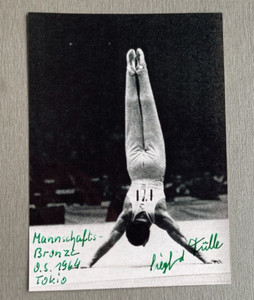 121
Mannschafts-
Bronze
O.S. 1964
Tokio
Siegf d Fülle